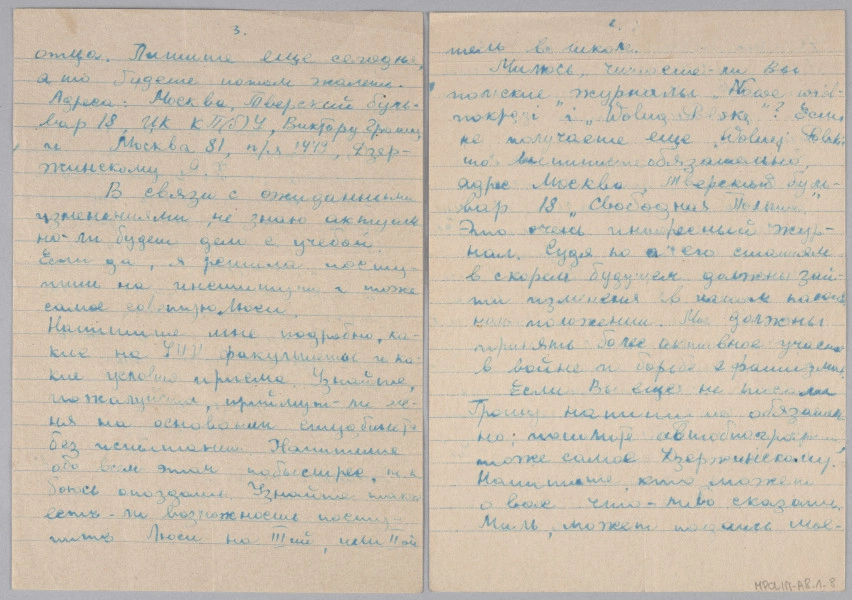 3.
отца. Пишите еще сегодня,
а то будете потом жалеть.
Адреса: Москва, Тверский буль-
вар 18, ЦК КП(б)У, Виктору Грошу
и Москва 81, п/я Дзер-
жинскому
В связи с ожиданными
изменениями, не знаю актуаль
но-ли будет дело с учебой.
Если да, я решила посту-
пить на институт и тоже
самое советую Люси.
Напишите мне подробно, ка-
кие на факультеты и ка-
кие условия приема. Узнайте,
пожалуйста, приймут-ли ме-
ня на основании
без испытаний. Напишите
обо всем этом побыстрее, т.к.
боюсь опоздать. Узнайте также
есть-ли возможность посту-
пить Люси на IIIий, или IIой
2.
тель в школе.
Милюсь, читаете-ли Вы
польские журналы „Nowe wid-
? Если
не получаете еще
то выпишите обязательно,
адрес Москва, Тверский буль-
вар 18 „Свободная Польша".
Это очень интересный жур-
нал. Судя по его статьям
в скором будущем должны зай-
ти изменения в нашем
ном положении. Мы должны
принять более активное участие
в войне и борьбе с фашизмом.
Если Вы еще не писали
Грошу напишите обязатель
но: пошлите автобиографию
тоже самое Дзержинскому.
Напишите, кто может
о вас что-либо сказать.
Миль, может
MPOLIN-A8.1.8